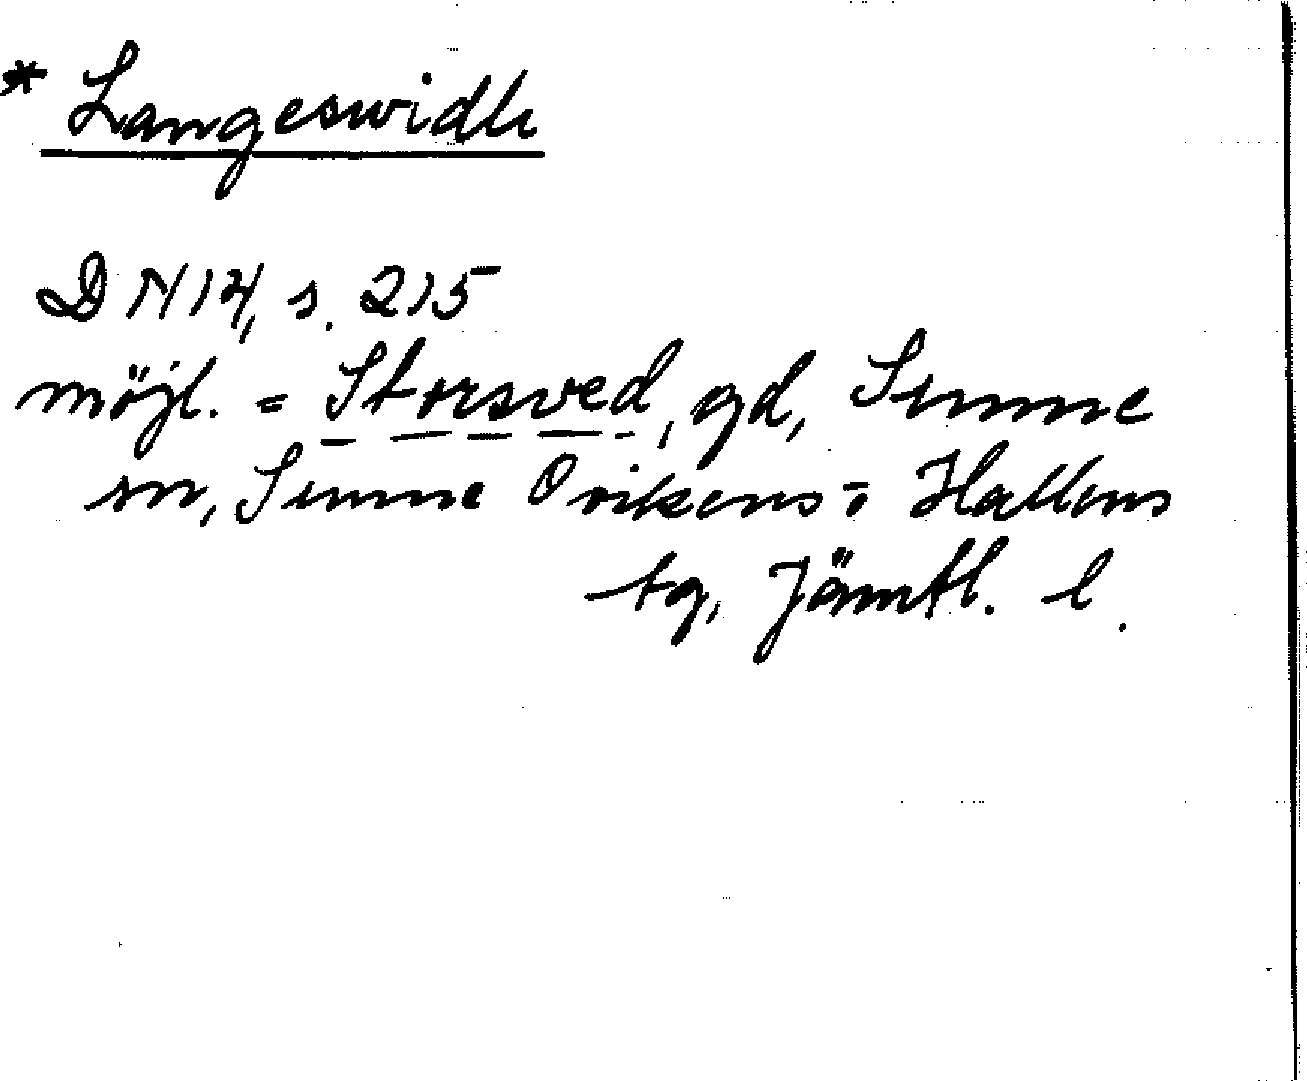 * Langeswidh
DN 14, s. 215
möjl. = Storsved, gd, Sunne
sn, Sunne Ovikens o Hallens
tg, Jämtl. l.